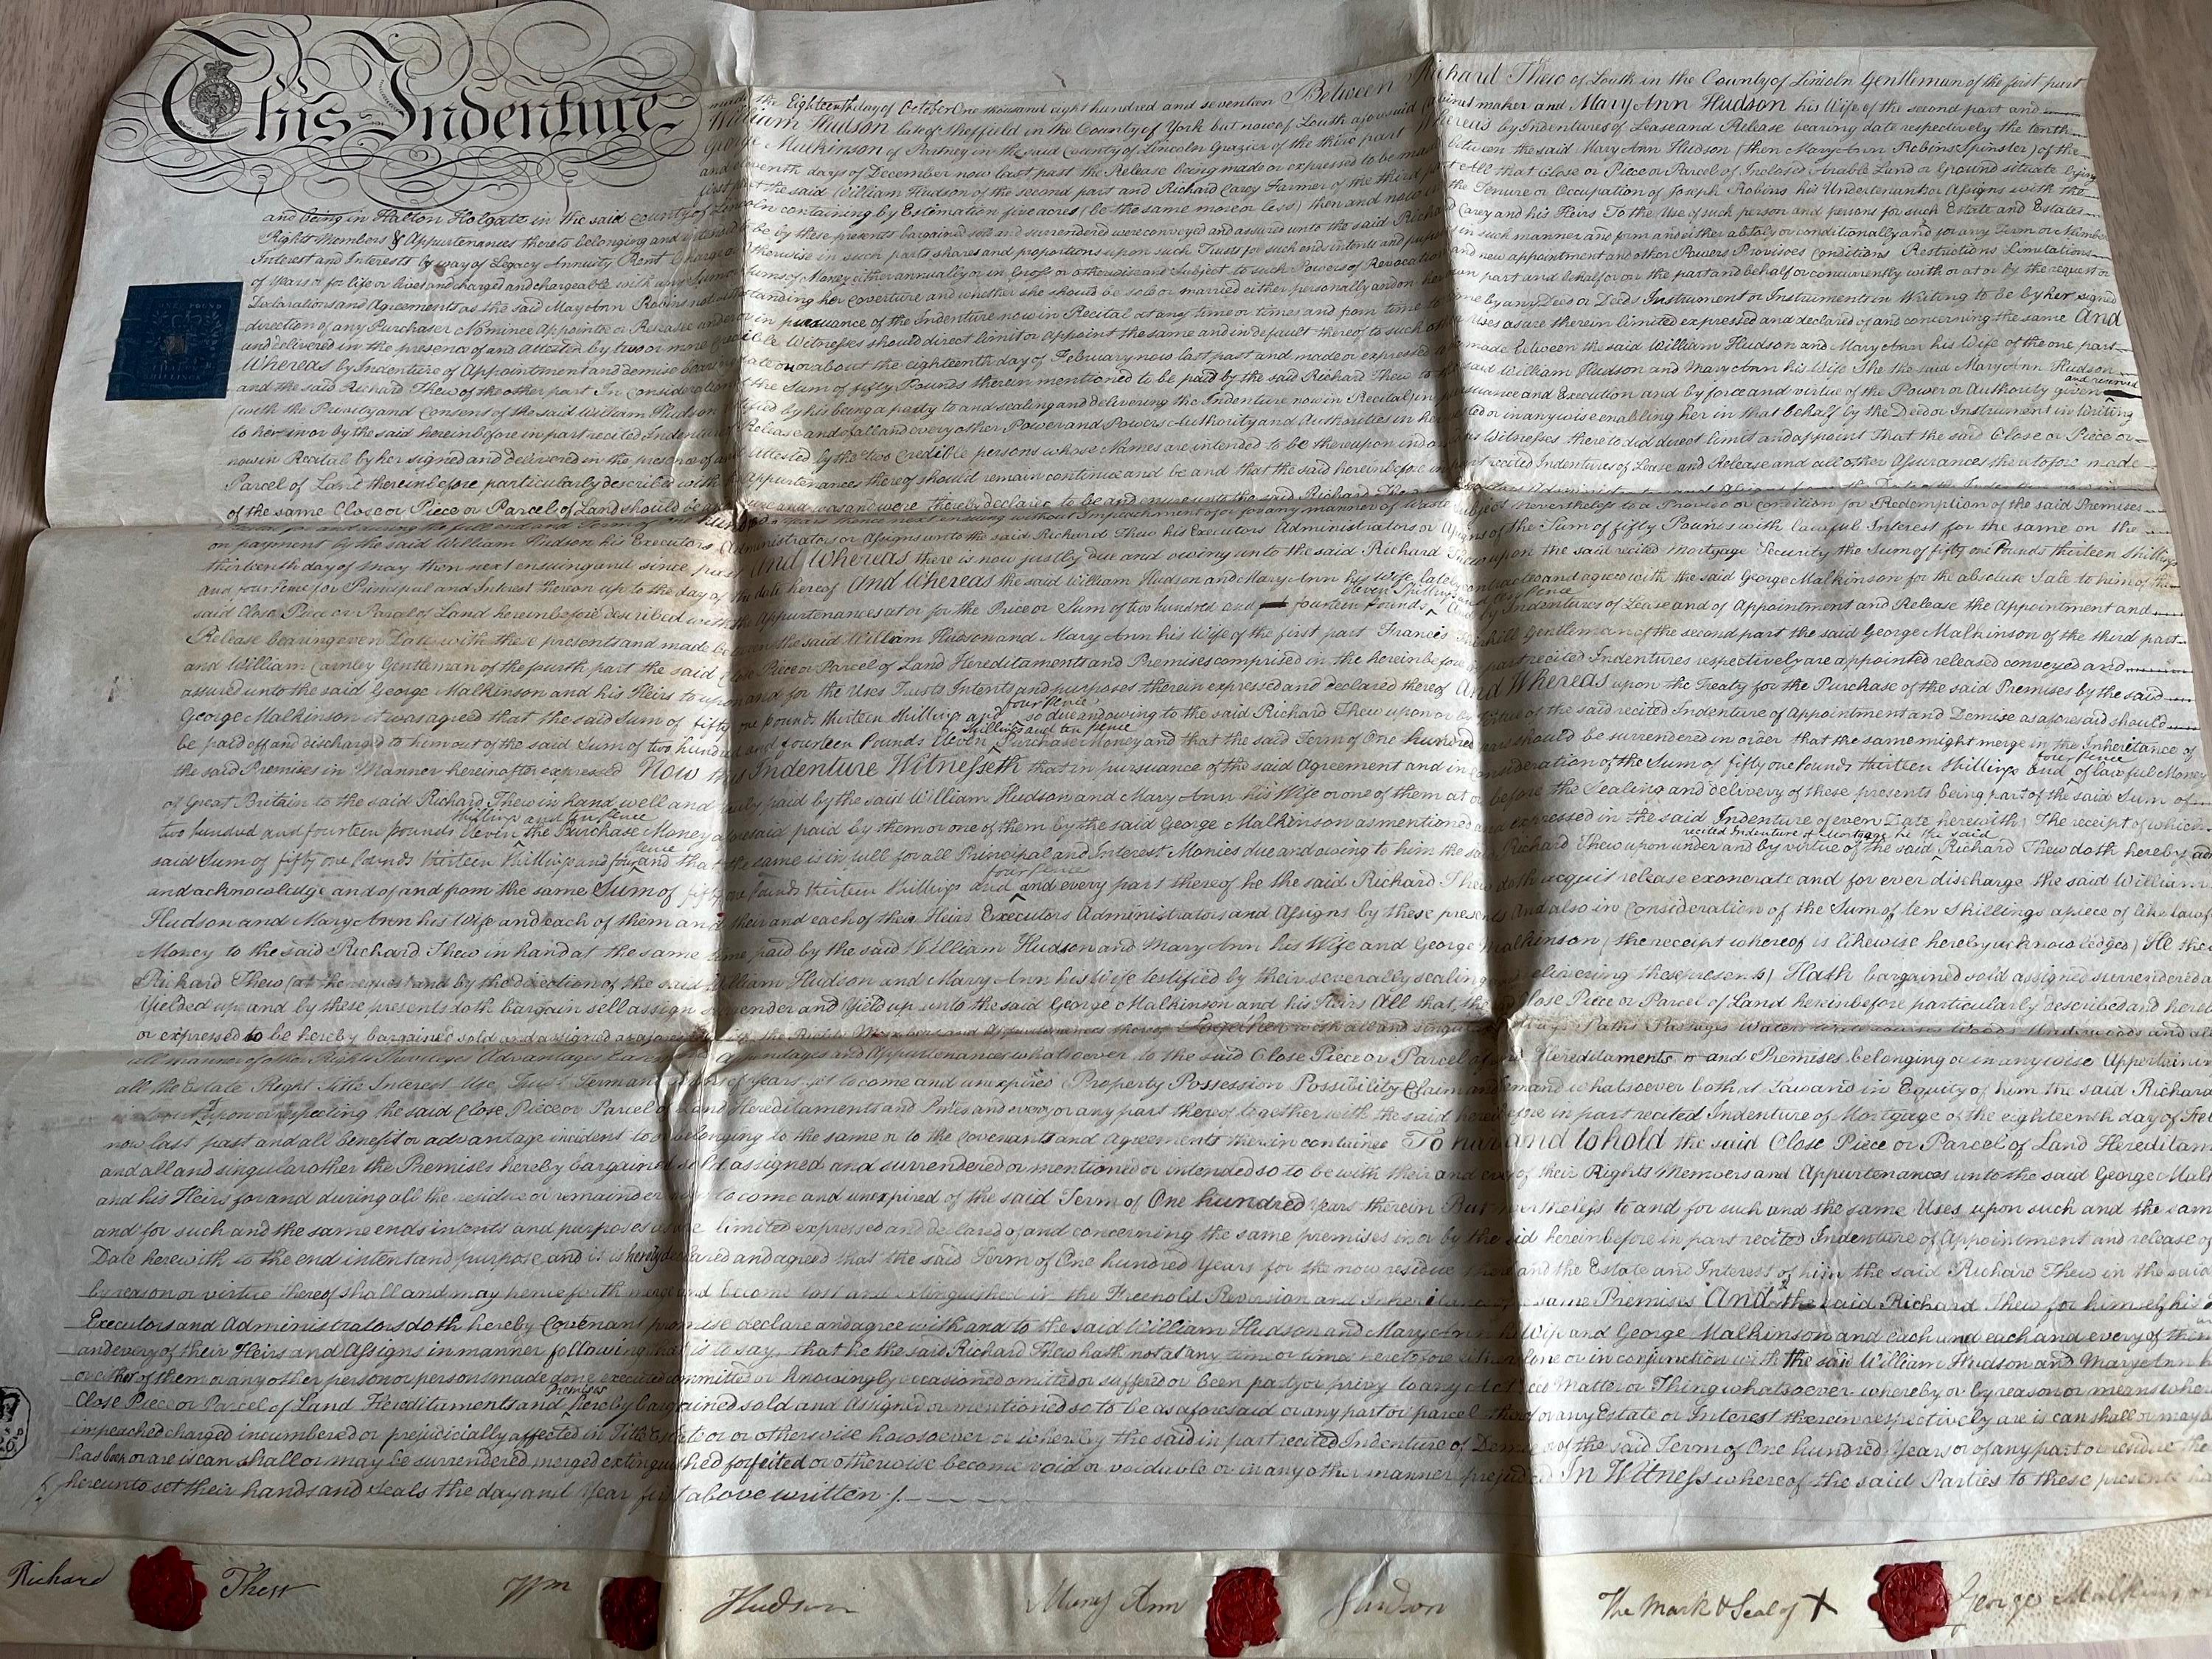 This Indenture
made the Eighteenth day of October One thousand eight hundred and seventeen Between Richard Thew of Louth in the County of Lincoln Gentleman of the first part
William Hudson late of Sheffield in the County of York but now of Louth aforesaid Cabinet maker and Mary Ann Hudson his Wife of the second part and
George Malkinson of Partney in the said County of Lincoln Grazier of the third part Whereas by Indentures of Lease and Release bearing date respectively the tenth
and eleventh days of December now last past the Release being made or expressed to be made between the said Mary Ann Hudson (then Mary Ann Robins Spinster) of the
first part the said William Hudson of the second part and Richard Carey Farmer of the third part All that Close or Piece or Parcel of Inclosed Arable Land or Ground situate lying
and being in Halton Holgate in the said County of Lincoln containing by Estimation five acres (be the same more or less) then and now in the Tenure or Occupation of Joseph Robins his Undertenants or Assigns with the
Right Members & Appurtenances thereto belonging and intended to be by these presents bargained sold and surrendered were conveyed and assured unto the said Richard Carey and his Heirs To the Use of such person and persons for such Estate and Estates
Interest and Interests by way of Legacy Annuity Rent Charge or otherwise in such parts shares and proportions upon such Trusts for such ends intents and purposes in such manner and form and either absolutely or conditionally and for any Term or Number
of Years or for life or lives and charged and chargeable with any Sum or Sums of Money either annually or in Gross or otherwise and Subject to such Powers of Revocation and new appointment and other Powers Provisoes Conditions Restrictions Limitations
Declarations and Agreements as the said Mary Ann Robins notwithstanding her Coverture and whether she should be sole or married either personally and on her own part and behalf or on the part and behalf or concurrently with or at or by the request or
direction of any Purchaser Nominee Appointee or Releasee under or in pursuance of the Indenture now in Recital at any time or times and from time to time by any Deed or Deeds Instrument or Instruments in Writing to be by her signed
and delivered in the presence of and Attested by two or more Credible Witnesses should direct limit or appoint the same and in default thereof to such other Uses as are therein limited expressed and declared of and concerning the same And
Whereas by Indenture of Appointment and demise bearing date on or about the eighteenth day of February now last past and made or expressed to be made between the said William Hudson and Mary Ann his Wife of the one part
and the said Richard Thew of the other part In consideration of the Sum of fifty Pounds therein mentioned to be paid by the said Richard Thew to the said William Hudson and Mary Ann his Wife She the said Mary Ann Hudson
(with the Privity and Consent of the said William Hudson testified by his being a party to and sealing and delivering the Indenture now in Recital) in pursuance and Execution and by force and virtue of the Power or Authority given and reserved
to her in or by the said hereinbefore in part recited Indenture of Release and of all and every other Power and Powers Authority and Authorities in her vested or in any wise enabling her in that behalf by the Deed or Instrument in Writing
now in Recital by her signed and delivered in the presence of and Attested by the two Credible persons whose Names are intended to be thereupon indorsed as Witnesses thereto did direct limit and appoint That the said Close or Piece or
Parcel of Land thereinbefore particularly described with the Appurtenances thereof should remain continue and be and that the said hereinbefore in part recited Indentures of Lease and Release and all other Assurances theretofore made
of the same Close or Piece or Parcel of Land should be and enure and was and were thereby declared to be and enure unto the said Richard Thew
hundred years thence next ensuing without Impeachment of or for any manner of Waste subject nevertheless to a Proviso or Condition for Redemption of the said Premises
on payment by the said William Hudson his Executors Administrators or Assigns unto the said Richard Thew his Executors Administrators or Assigns of the Sum of fifty Pounds with lawful Interest for the same on the
thirteenth day of May then next ensuing and since past And Whereas there is now justly due and owing unto the said Richard Thew upon the said recited Mortgage Security the Sum of fifty one Pounds thirteen Shillings
and four Pence for Principal and Interest thereon up to the day of the date hereof And Whereas the said William Hudson and Mary Ann his Wife lately contracted and agreed with the said George Malkinson for the absolute Sale to him of the
said Close Piece or Parcel of Land hereinbefore described with the Appurtenances at or for the Price or Sum of two hundred and fourteen Pounds eleven Shillings and ten Pence And by Indentures of Lease and of Appointment and Release the Appointment and
Release bearing even Date with these presents and made between the said William Hudson and Mary Ann his Wife of the first part Francis Gentleman of the second part the said George Malkinson of the third part
and William Gentleman of the fourth part the said Close Piece or Parcel of Land Hereditaments and Premises comprised in the hereinbefore in part recited Indentures respectively are appointed released conveyed and
assured unto the said George Malkinson and his Heirs to upon and for the Uses Trusts Intents and purposes therein expressed and declared thereof And Whereas upon the Treaty for the Purchase of the said Premises by the said
George Malkinson it was agreed that the said Sum of fifty one pounds thirteen Shillings and four Pence so due and owing to the said Richard Thew upon or by Virtue of the said recited Indenture of Appointment and Demise as aforesaid should
be paid off and discharged to him out of the said Sum of two hundred and fourteen Pounds eleven Shillings and ten Pence Purchase Money and that the said Term of One hundred years should be surrendered in order that the same might merge in the Inheritance of
the said Premises in Manner hereinafter expressed Now this Indenture Witnesseth that in pursuance of the said Agreement and in Consideration of the Sum of fifty one Pounds thirteen Shillings and four Pence of lawful Money
of Great Britain to the said Richard Thew in hand well and truly paid by the said William Hudson and Mary Ann his Wife or one of them at or before the Sealing and delivery of these presents being part of the said Sum of
two hundred and fourteen pounds eleven Shillings and ten Pence the Purchase Money aforesaid paid by them or one of them by the said George Malkinson as mentioned and expressed in the said Indenture of even Date herewith The receipt of which
said Sum of fifty one Pounds thirteen Shillings and four Pence and that the same is in full for all Principal and Interest Monies due and owing to him the said Richard Thew upon under and by virtue of the said recited Indenture of Mortgage he the said Richard Thew doth hereby
and acknowledge and of and from the same Sum of fifty one Pounds thirteen Shillings and four Pence and every part thereof he the said Richard Thew doth acquit release exonerate and for ever discharge the said William
Hudson and Mary Ann his Wife and each of them and their and each of their Heirs Executors Administrators and Assigns by these presents And also in Consideration of the Sum of ten Shillings apiece of like lawful
Money to the said Richard Thew in hand at the same time paid by the said William Hudson and Mary Ann his Wife and George Malkinson (the receipt whereof is likewise hereby acknowledged) He the
Richard Thew (at the request and by the direction of the said William Hudson and Mary Ann his Wife testified by their severally sealing and delivering these presents) Hath bargained sold assigned surrendered
Yielded up and by these presents doth bargain sell assign surrender and Yield up unto the said George Malkinson and his Heirs All that the said Close Piece or Parcel of Land hereinbefore particularly described and
or expressed to be hereby bargained sold and assigned as aforesaid with the Rights Members and Appurtenances thereof Together with all and singular Ways Paths Passages Waters Watercourses Woods Underwoods and all
all manner of other Rights Privileges Advantages Appendages and Appurtenances whatsoever to the said Close Piece or Parcel of Land Hereditaments and Premises belonging or in any wise Appertaining
all the Estate Right Title Interest Use Trust Term and Terms of Years yet to come and unexpired Property Possession Possibility Claim and Demand whatsoever both at Law and in Equity of him the said Richard
upon or respecting the said Close Piece or Parcel of Land Hereditaments and and every or any part thereof together with the said hereinbefore in part recited Indenture of Mortgage of the eighteenth day of
now last past and all benefit or advantage incident to or belonging to the same or to the Covenants and Agreements therein contained To have and to hold the said Close Piece or Parcel of Land
and all and singular other the Premises hereby bargained sold assigned and surrendered or mentioned or intended so to be with their and every of their Rights Members and Appurtenances unto the said George
and his Heirs for and during all the residue or remainder now to come and unexpired of the said Term of One hundred Years therein But nevertheless to and for such and the same Uses upon such and the same
and for such and the same ends intents and purposes as are limited expressed and declared of and concerning the same premises in or by the said hereinbefore in part recited Indenture of Appointment and release of
Date herewith to the end intent and purpose and it is hereby declared and agreed that the said Term of One hundred Years for the now residue thereof and the Estate and Interest of him the said Richard Thew in the said
by reason or virtue thereof shall and may henceforth merge and become lost and extinguished in the Freehold Reversion and Inheritance of the same Premises And the said Richard Thew for himself his
Executors and Administrators doth hereby Covenant promise declare and agree with and to the said William Hudson and Mary Ann his Wife and George Malkinson and each and each and every of
and every of their Heirs and Assigns in manner following that is to say that he the said Richard Thew hath not at any time or times heretofore either alone or in conjunction with the said William Hudson and Mary Ann
or either of them or any other person or persons made done executed committed or knowingly occasioned omitted or suffered or been party or privy to any Act Deed Matter or Thing whatsoever whereby or by reason or means
Close Piece or Parcel of Land Hereditaments and Premises hereby bargained sold and Assigned or mentioned so to be as aforesaid or any part or parcel thereof or any Estate or Interest therein respectively are is can shall or may
impeached charged incumbered or prejudicially affected in Title Estate or otherwise howsoever or whereby the said in part recited Indenture of Demise or the said Term of One hundred Years or of any part
has been or are is can shall or may be surrendered merged extinguished forfeited or otherwise become void or voidable or in any other manner In Witness whereof the said Parties to these presents
hereunto set their hands and Seals the day and Year first above written
Richard Thew Wm Hudson Mary Ann Hudson The Mark & Seal of X George Malkinson